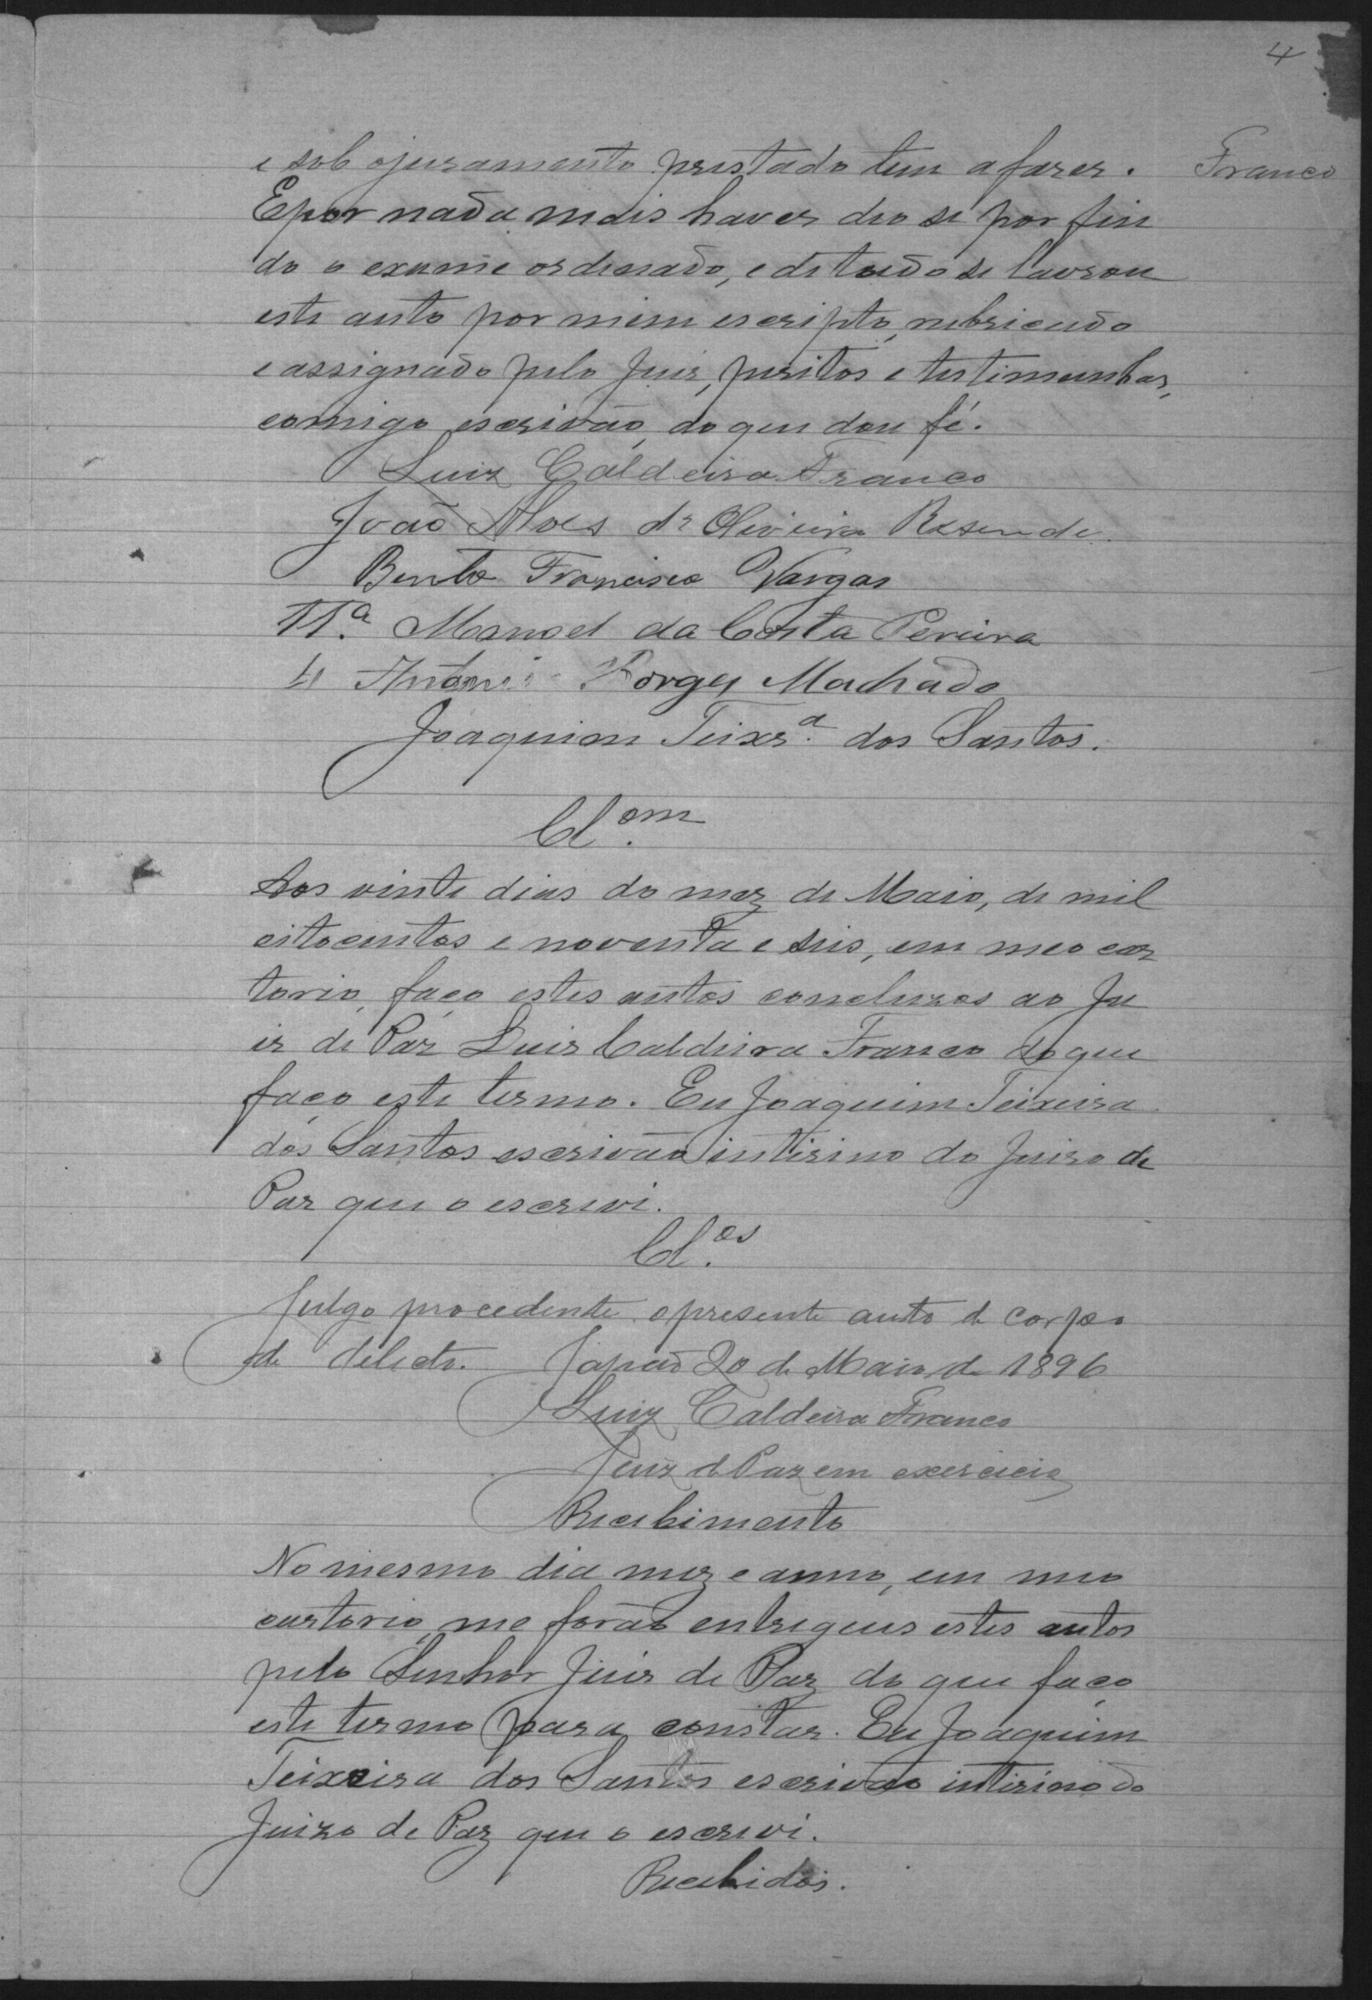 4
Franco
e sob o juramento prestado tem a faser.
E por nada mais haver deo se por fin
do o exame ordenado, e de tudo se lavrou
este auto por mim escripto, rubricado
e assignado pelo Juis, peritos e testimunhas,
comigo escrivão, do que dou fé.
Luiz Caldeira Franco
João Alves de Oliveira Resende.
Bento Francisco Vargas
TTª. Manoel da Costa Pereira
Antonio Borges Machado
Joaquim Teixrª. dos Santos.
Cl.om
Aos vinte dias do mez de Maio, de mil
oitocentos e noventa e seis, em meo car
torio, faço estes autos concluzos ao Ju
is de Paz Luis Caldeira Franco do que
faço este termo. Eu Joaquim Teixeira
dos Santos escrivão intirino do Juiso de
Paz que o escrevi.
Cl.os
Julgo procedente o presente auto de corpo
de delicto. Japão 20 de Maio de 1896
Luiz Caldeira Franco
Juiz de Paz em exercicio
Recebimento
No mesmo dia mez e anno, em meo
cartorio, me forão entregues estes autos
pelo Senhor Juis de Paz do que faço
este termo para constar. Eu Joaquim
Teixeira dos Santos escrivão intirino do
Juizo de Paz que o escrevi.
Recebidos.